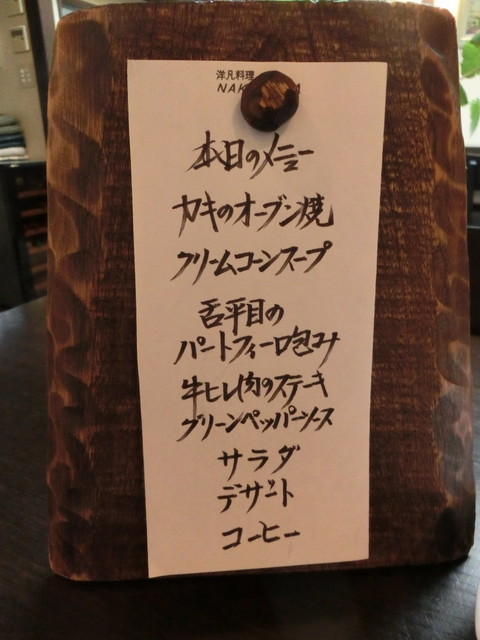 洋凡料理
本日のメニュー
カキのオーブン焼
クリームコーンスープ
舌平目の
パートフィーロ包み
牛ヒレ肉のステーキ
グリーンペッパーソース
サラダ
デザート
コーヒー